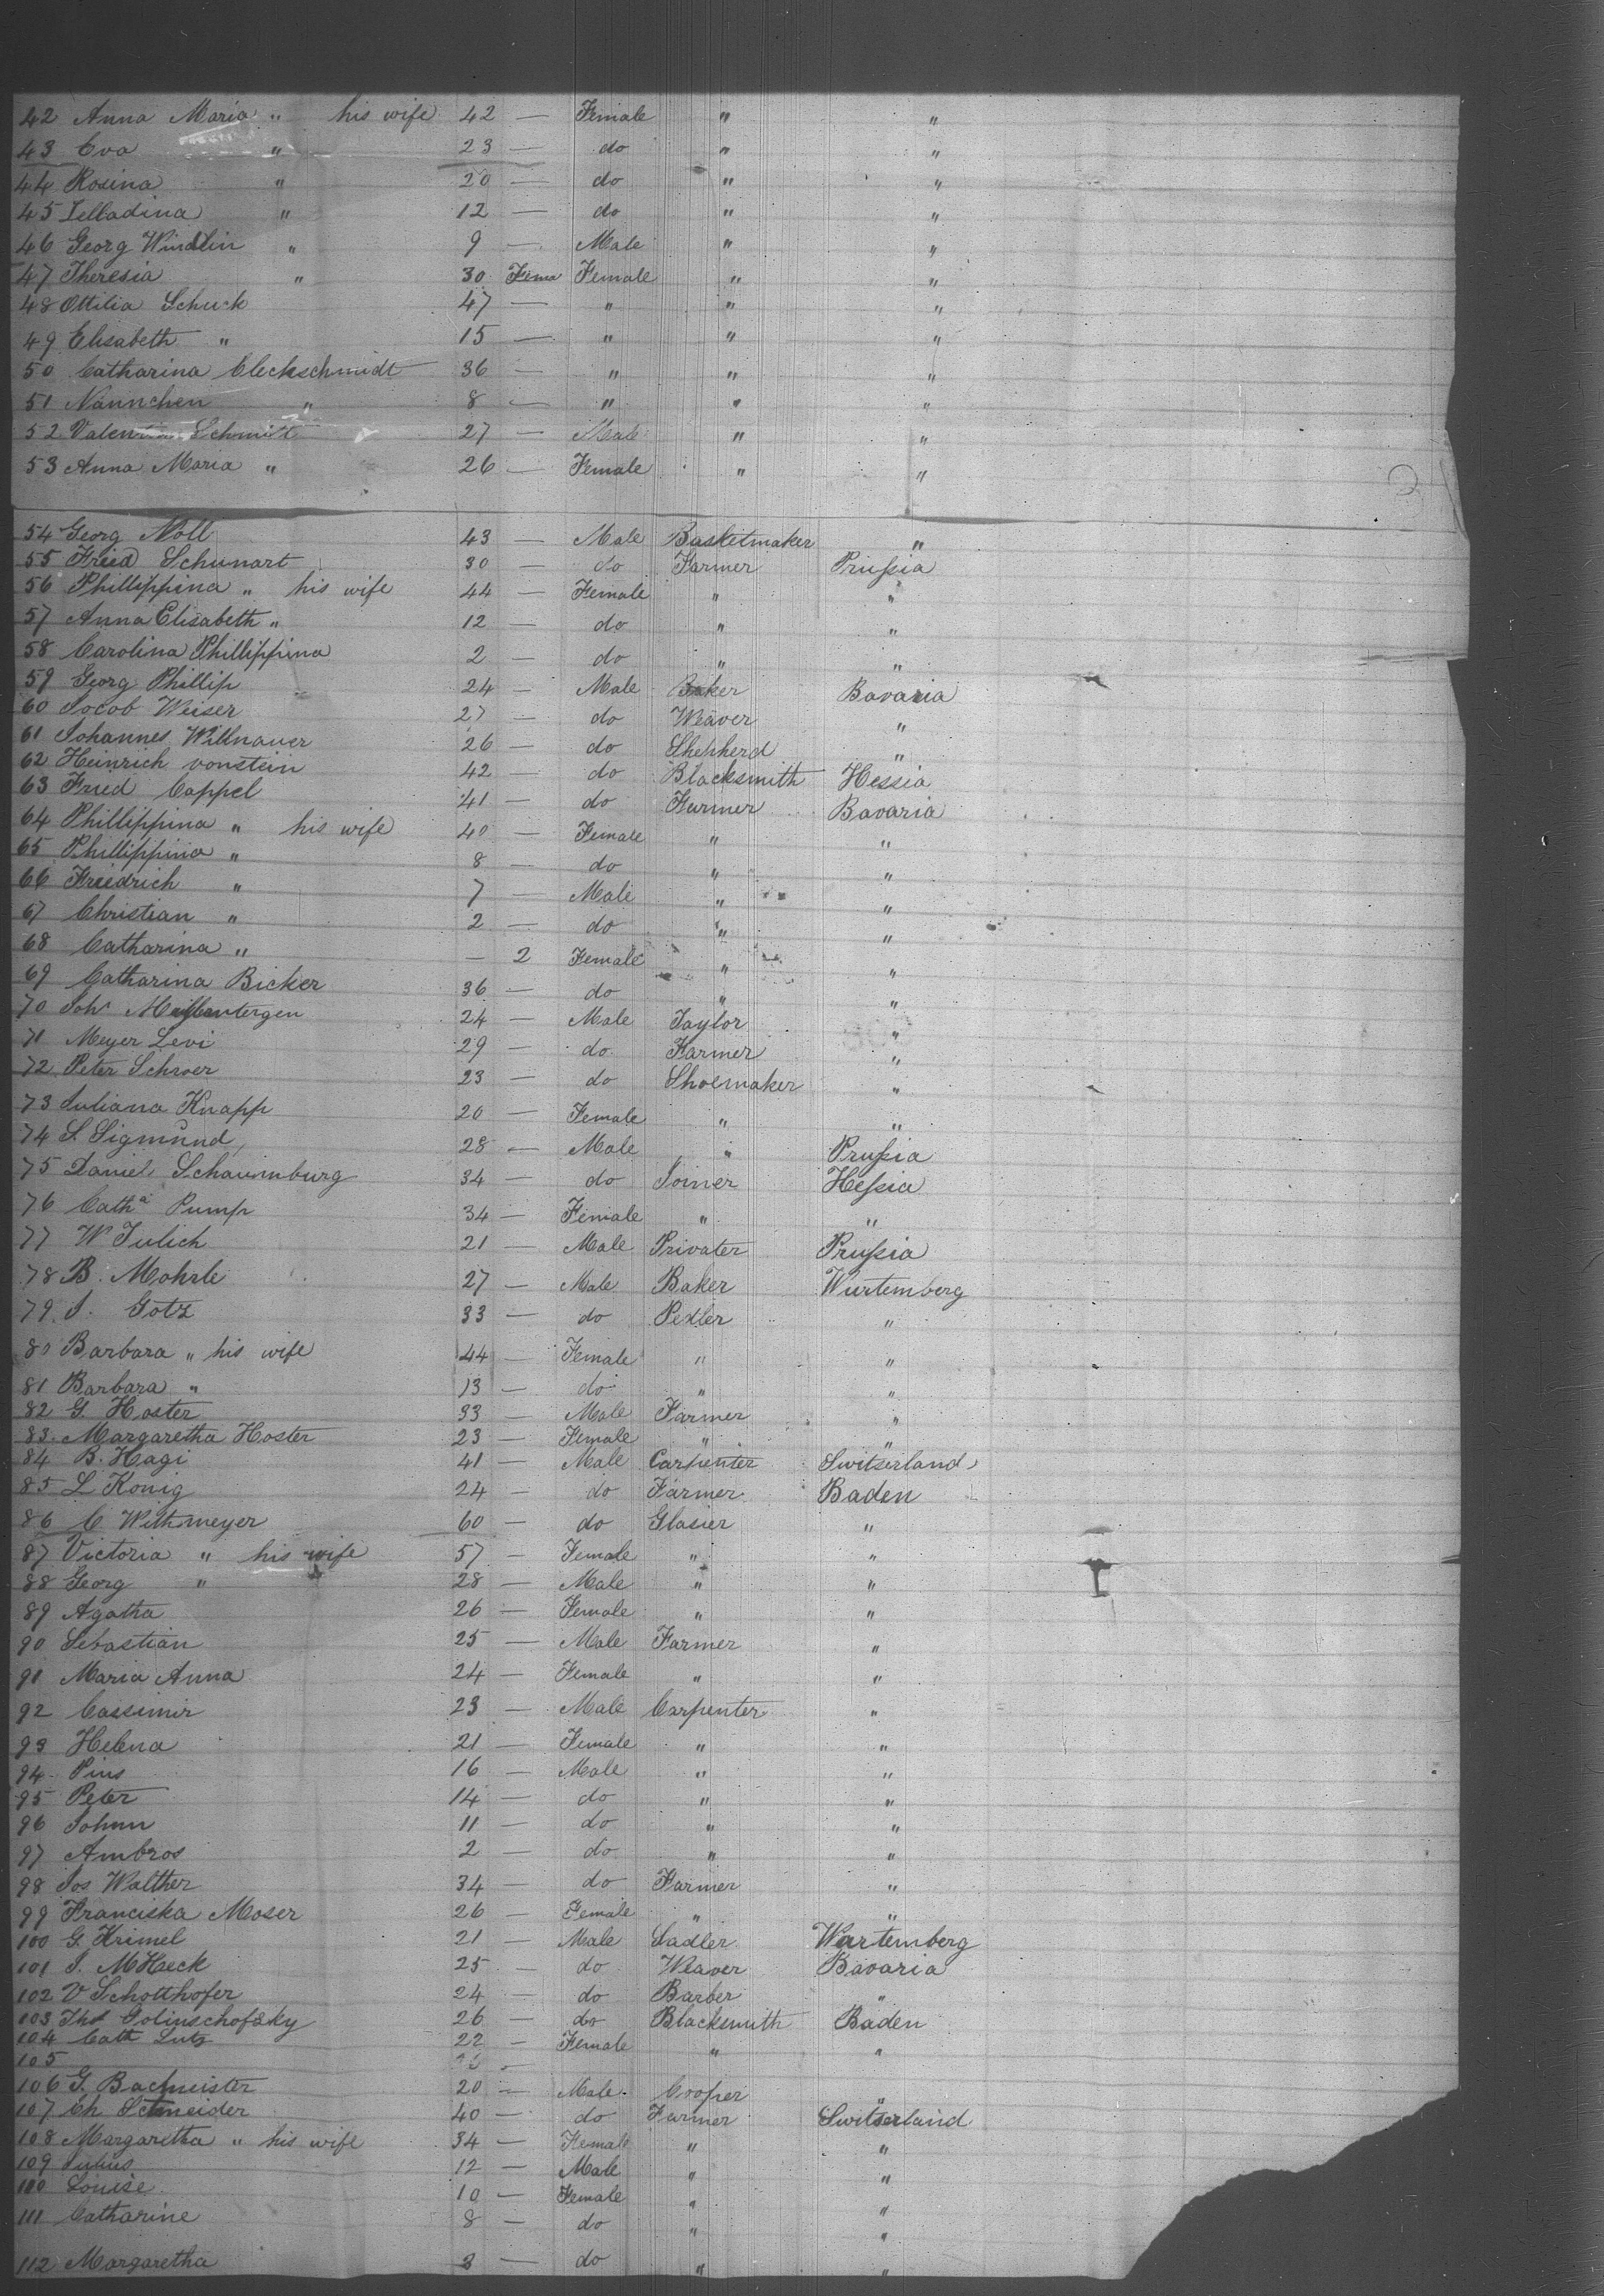 42 Anna Maria " his wife 42 — Female " "
43 Eva " 23 — do " "
44 Rosina " 20 — do " "
45 " 12 — do " "
46 Georg Windlin " 9 — Male " "
47 Theresia " 30 Fema Female " "
48 Ottilia Schuck 47 — " " "
49 Elisabeth " 15 — " " "
50 Catharina Cleckschmidt 36 — " " "
51 Nannchen " 8 — " " "
52 Schmidt 27 — Male " "
53 Anna Maria " 26 — Female " "
54 Georg Noll 43 — Male Basketmaker "
55 Fried Schunart 30 — do Farmer Prussia
56 Phillippina " his wife 44 — Female " "
57 Anna Elisabeth " 12 — do " "
58 Carolina Phillippina 2 — do " "
59 Georg Phillip 24 — Male Baker Bavaria
60 Jacob Weiser 27 — do Weaver "
61 Johannes Willnauer 26 — do Shepherd "
62 Heinrich vonstein 42 — do Blacksmith Hessia
63 Fried Cappel 41 — do Farmer Bavaria
64 Phillippina " his wife 40 — Female " "
65 Phillippina " 8 — do " "
66 Friedrich " 7 — Male " "
67 Christian " 2 — do " "
68 Catharina " — 2 Female " "
69 Catharina Bicker 36 — do " "
70 Joh. 24 — Male Taylor "
71 Meyer Levi 29 — do Farmer "
72 Peter Schroer 23 — do Shoemaker "
73 Juliana Knapp 20 — Female " "
74 S. Sigmund 28 — Male " Prussia
75 Daniel Schaumburg 34 — do Joiner Hessia
76 Catha Pump 34 — Female " "
77 W Julich 21 — Male Privater Prussia
78 B. Mohrle 27 — Male Baker Wurtemberg
79 J. Gotz 33 — do Pedler "
80 Barbara " his wife 44 — Female " "
81 Barbara " 13 — do " "
82 G. Hoster 33 — Male Farmer "
83. Margaretha Hoster 23 — Female " "
84 B. Hagi 41 — Male Carpenter Switserland
85 L Konig 24 — do Farmer Baden
86 C Withmeyer 60 — do Glasier "
87 Victoria " his wife 57 — Female " "
88 Georg " 28 — Male " "
89 Agatha 26 — Female " "
90 Sebastian 25 — Male Farmer "
91 Maria Anna 24 — Female " "
92 Cassimir 23 — Male Carpenter "
93 Helena 21 — Female " "
94 Pius 16 — Male " "
95 Peter 14 — do " "
96 Johnn 11 — do " "
97 Ambros 2 — do " "
98 Jos Walther 34 — do Farmer "
99 Franciska Moser 26 — Female " "
100 G. Krimel 21 — Male Sadler Wartemberg
101 J. M Haeck 25 — do Weaver Bavaria
102 V Schotthofer 24 — do Barber "
103 Golinschofsky 26 — do Blacksmith Baden
104 Cath Lutz 22 — Female " "
105
106 G. Bachmeister 20 — Male Cooper "
107 Ch Schneider 40 — do Farmer Switserland
108 Margaretha " his wife 34 — Female " "
109 Julius 12 — Male " "
110 Louise 10 — Female " "
111 Catharine 8 — do " "
112 Margaretha 3 — do " "